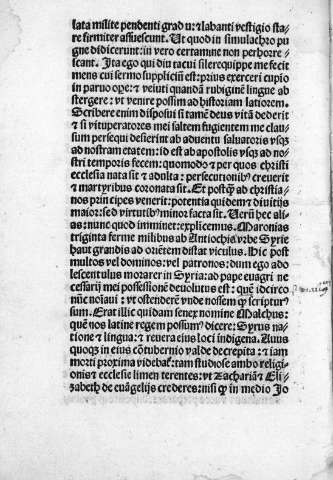 lata milite pendenti gradu: ⁊ labanti vestigio sta⸗
re firmiter assuescunt. Ut quod in simulachro pu
gne didicerunt: in vero certamine non perhorre⸗
scant. Ita ego qui diu tacui silere quippe me fecit
mens cui sermo suppliciũ est: prius exerceri cupio
in paruo oꝑe: ⁊ veluti quandã rubiginẽ lingue ab
stergere: vt venire possim ad historiam latiorem.
Scribere enim disposui si tamẽ deus vitã dederit
⁊ si vituperatores mei saltem fugientem me clau⸗
sum persequi desierint ab aduentu saluatoris vsqꝫ
ad nostram etatem: id est ab apostolis vsqꝫ ad no⸗
stri temporis fecem: quomodo ⁊ per quos christi
ecclesia nata sit ⁊ adulta: persecutionibꝰ creuerit
⁊ martyribus coronata sit. Et postqꝫ̃ ad christia⸗
nos principes venerit: potentia quidem ⁊ diuitijs
maior: sed virtutibꝰ minor facta sit. Uerũ hec ali⸗
as: nunc quod imminet: explicemus. Maronias
triginta ferme milibus ab Antiochia vrbe Syrie
haut grandis ad oriẽtem distat viculus. Hic post
multos vel dominos: vel patronos: dum ego ado
lescentulus morarer in Syria: ad pape euagri ne
cessarij mei possessionẽ deuolutus est: quẽ idcirco
nũc noĩaui: vt ostenderẽ vnde nossem qꝫ scripturꝰ
sum. Erat illic quidam senex nomine Malchus:
quẽ nos latine regem possumꝰ dicere: Syrus na⸗
tione ⁊ lingua: ⁊ reuera eius loci indigena. Anus
quoqꝫ in eius cõtubernio valde decrepita: ⁊ iam
morti proxima videbat̃: tam studiose ambo religi⸗
onis ⁊ ecclesie limen terentes: vt Zachariã ⁊ Eli⸗
zabeth de euãgelijs crederes: nisi qꝫ in medio Jo